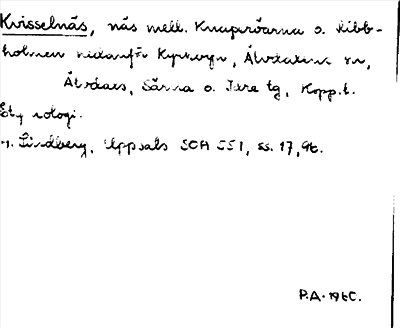 Kvisselnäs, näs mell. Knaperöarna o. Libb-
holmen nedanför Kyrkbyn, Älvdalens sn,
Älvdals, Särna o. Idre tg, Kopp.l.
Etymologi.
Lindberg, Uppsats SOA 551, ss. 17, 96.
P.A. 1960.